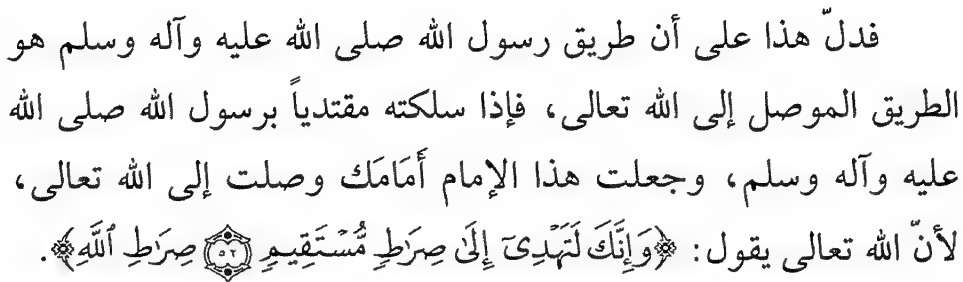 فدلّ هذا على أن طريق رسول الله صلى الله عليه وآله وسلم هو
الطريق الموصل إلى الله تعالى، فإذا سلكته مقتدياً برسول الله صلى الله
عليه وآله وسلم، وجعلت هذا الإمام أَمَامَك وصلت إلى الله تعالى،
لأنّ الله تعالى يقول: ﴿وَإِنَّكَ لَتَهْدِىٓ إِلَىٰ صِرَٰطٍ مُّسْتَقِيمٍ ۝٥٢ صِرَٰطِ ٱللَّهِ﴾.